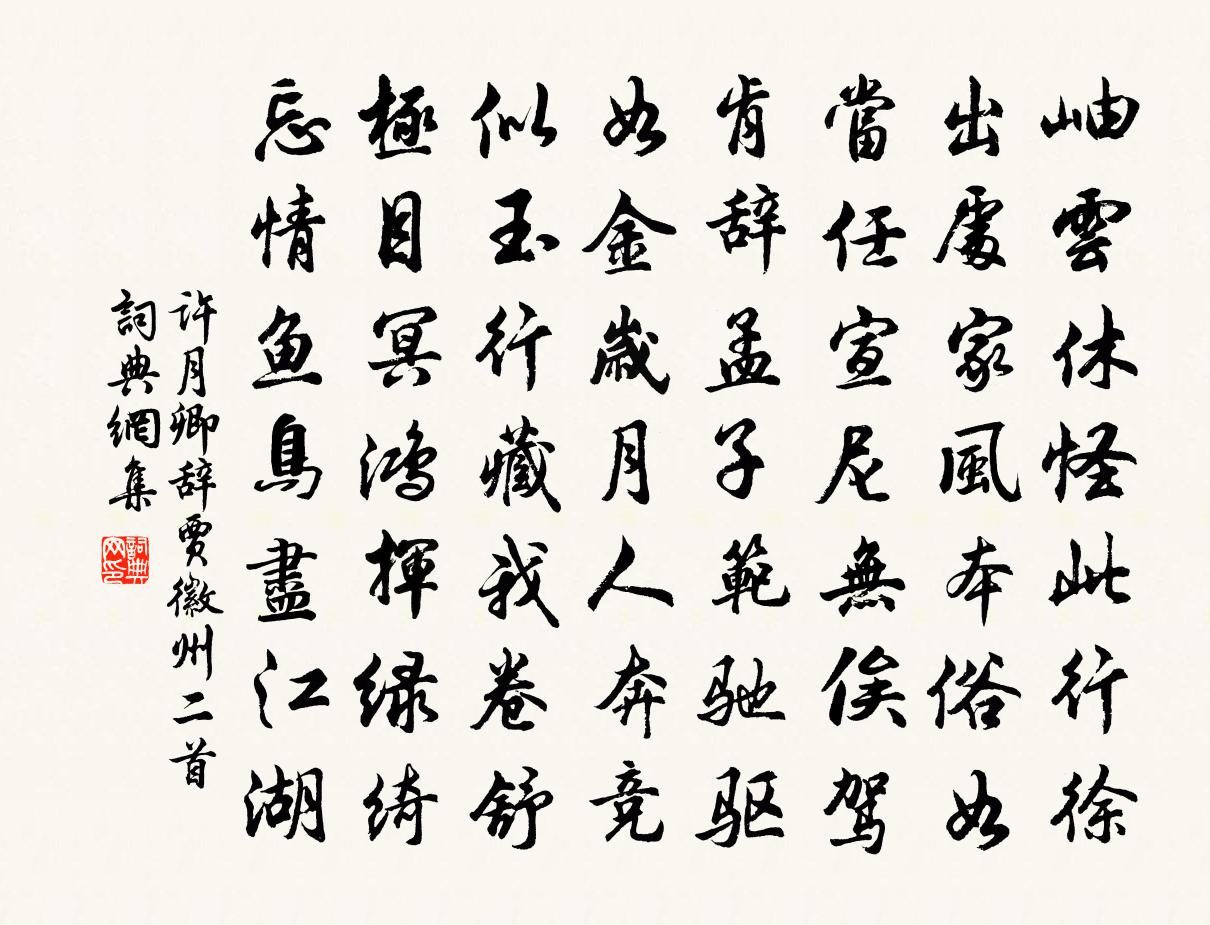 岫雲休怪此行徐
出處家風本俗如
當任宣尼無俟駕
肯辞孟子範驰驱
如金歲月人奔竞
似玉行藏我卷舒
極目冥鸿揮绿绮
忘情鱼鳥盡江湖
许月卿辞贾徽州二首
詞典網集
詞典网印